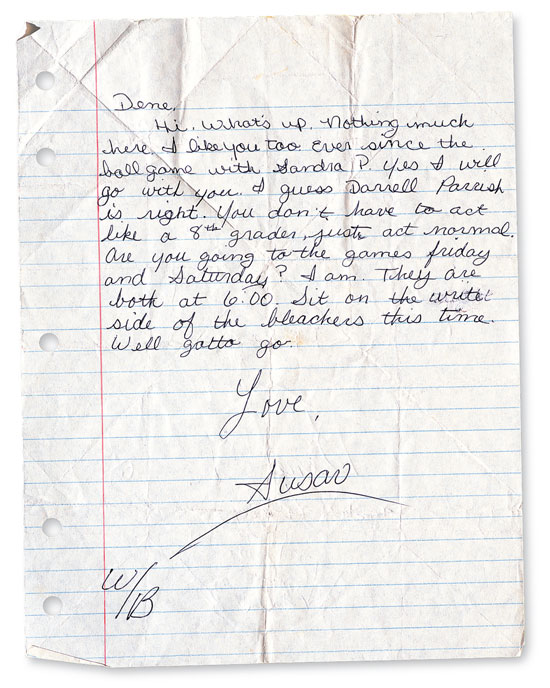 Dene,
Hi. What's up. Nothing much
here. I like you too ever since the
ball game with Sandra P. Yes I will
go with you. I guess Darrell Parrish
is right. You don't have to act
like a 8th grader, just act normal.
Are you going to the games friday
and Saturday? I am. They are
both at 6:00. Sit on the write
side of the bleachers this time.
Well gotta go.
Love,
Susan
W/B